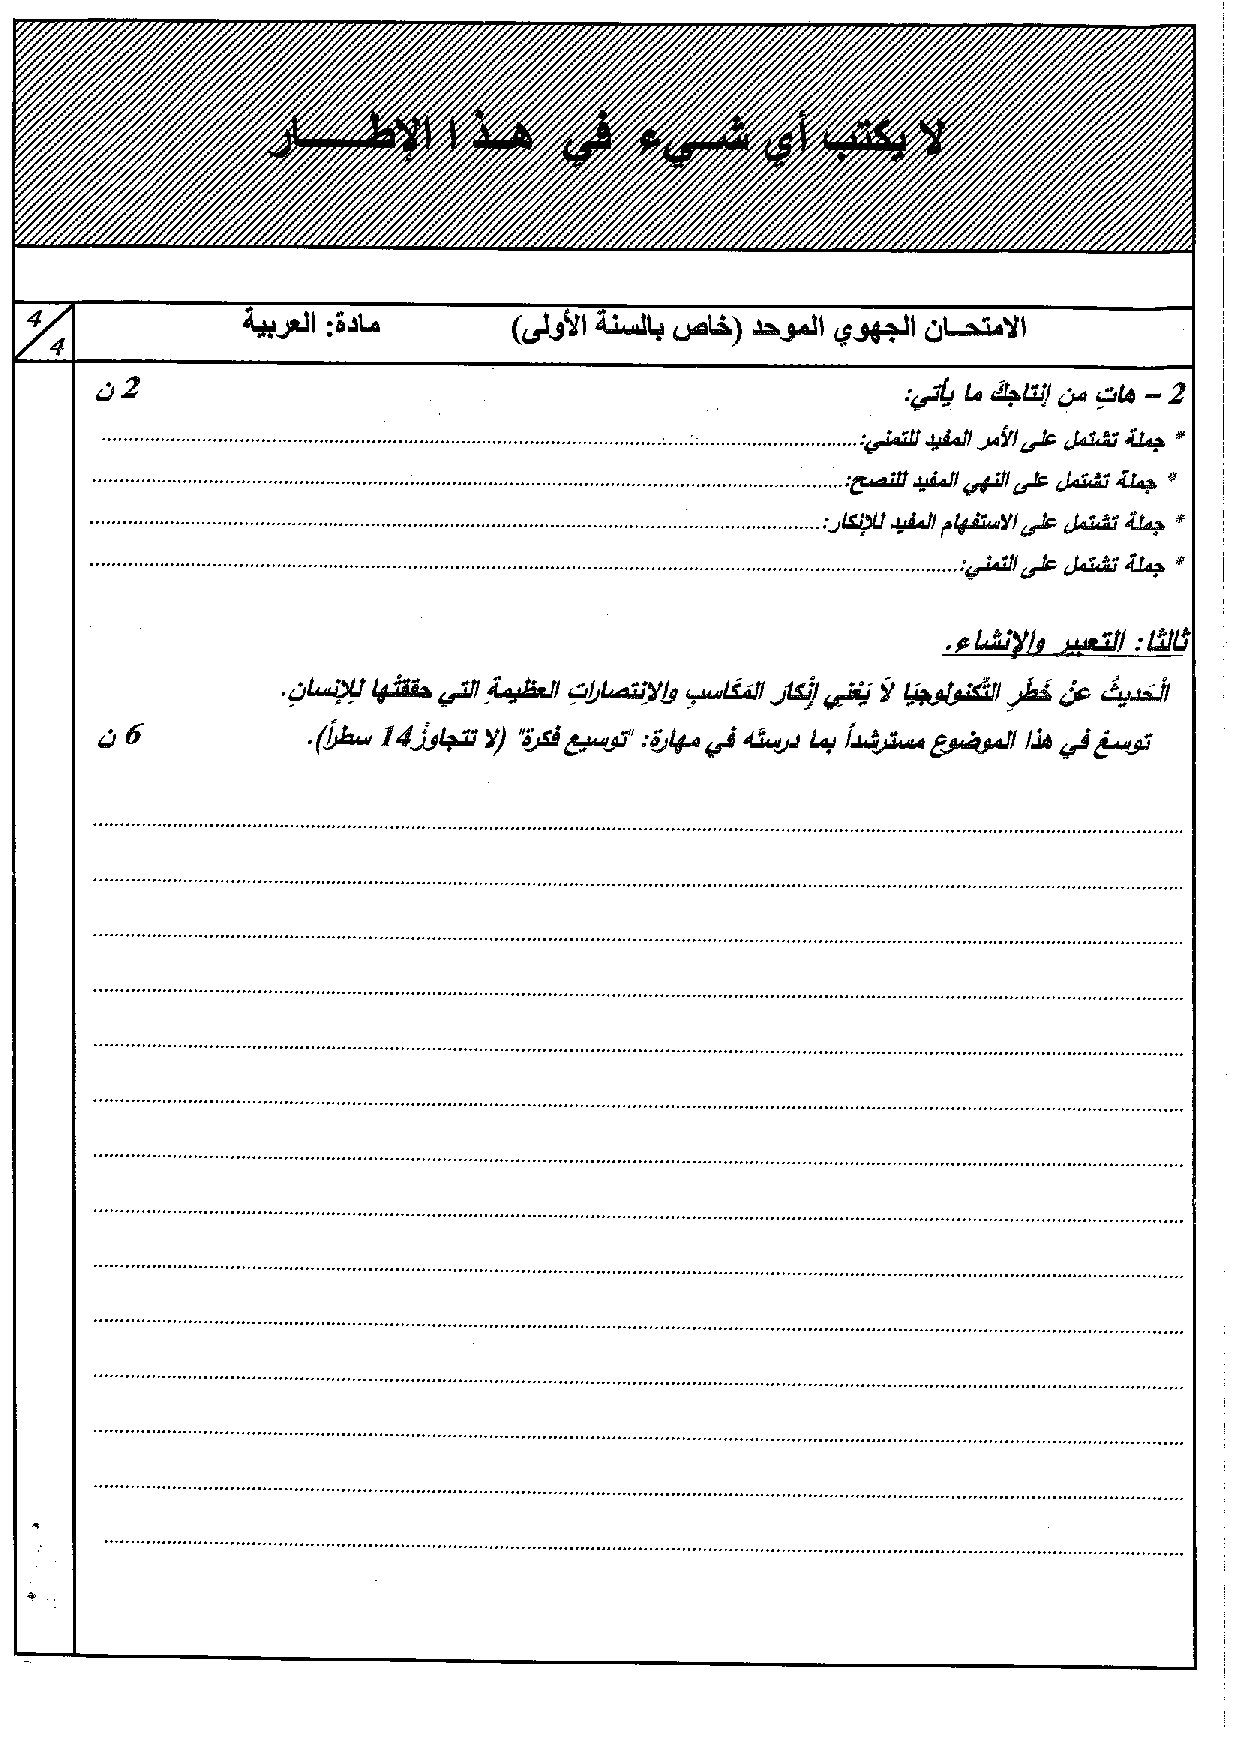 لا يكتب أي شيء في هذا الإطار
الامتحان الجهوي الموحد (خاص بالسنة الأولى) مادة: العربية 4/4
2 – هاتِ من إنتاجكَ ما يأتي: 2 ن
* جملة تشتمل على الأمر المفيد للتمني:
* جملة تشتمل على النهي المفيد للنصح:
* جملة تشتمل على الاستفهام المفيد للإنكار:
* جملة تشتمل على التمني:
ثالثا: التعبير والإنشاء.
الْحَديثُ عنْ خَطَرِ التِّكنولوجيَا لاَ يَعْنِي إنْكار المَكَاسبِ والاِنتصاراتِ العظيمةِ التي حققتْها للإنسانِ.
توسعْ في هذا الموضوع مسترشداً بما درستَه في مهارة: "توسيع فكرة" (لا تتجاوزْ 14 سطراً). 6 ن